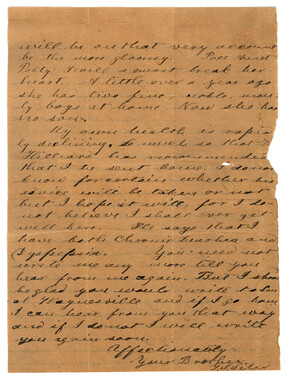 will be on that very account
be the more gloomy. Poor Aunt
Polly. It will almost break her
heart. A little over a year ago
she has two fine, noble, man-
ly boys at home. Now she has
no son.
My own health is rapid
ly declining, so much so that
has recommended
that I be sent home. I do not
know for certain whether his
advice will be taken or not
but I hope it will, for I do
not believe I shall ever get
well here. He says that I
have both Chronic diarhea and
Dyspepsia. You need not
write me any more till you
hear from me again. But I should
be glad you would write to
at Waynesville and if I go home
I can hear from you that way
and if I do not I will write
you again soon.
Affectionately
Your Brother